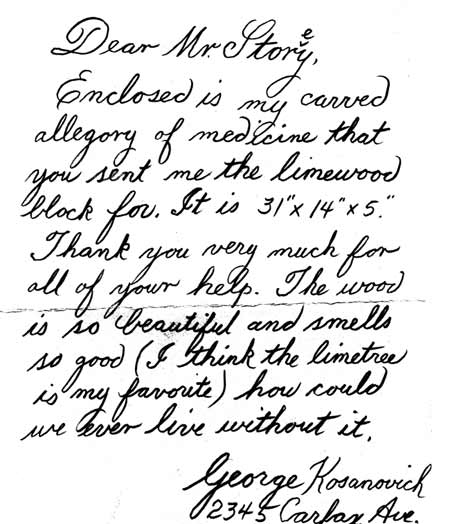 Dear Mr. Storey,
Enclosed is my carved
allegory of medicine that
you sent me the limewood
block for. It is 31"x 14"x 5."
Thank you very much for
all of your help. The wood
is so beautiful and smells
so good (I think the limetree
is my favorite) how could
we ever live without it.
George Kosanovich
2345 Carfax Ave.